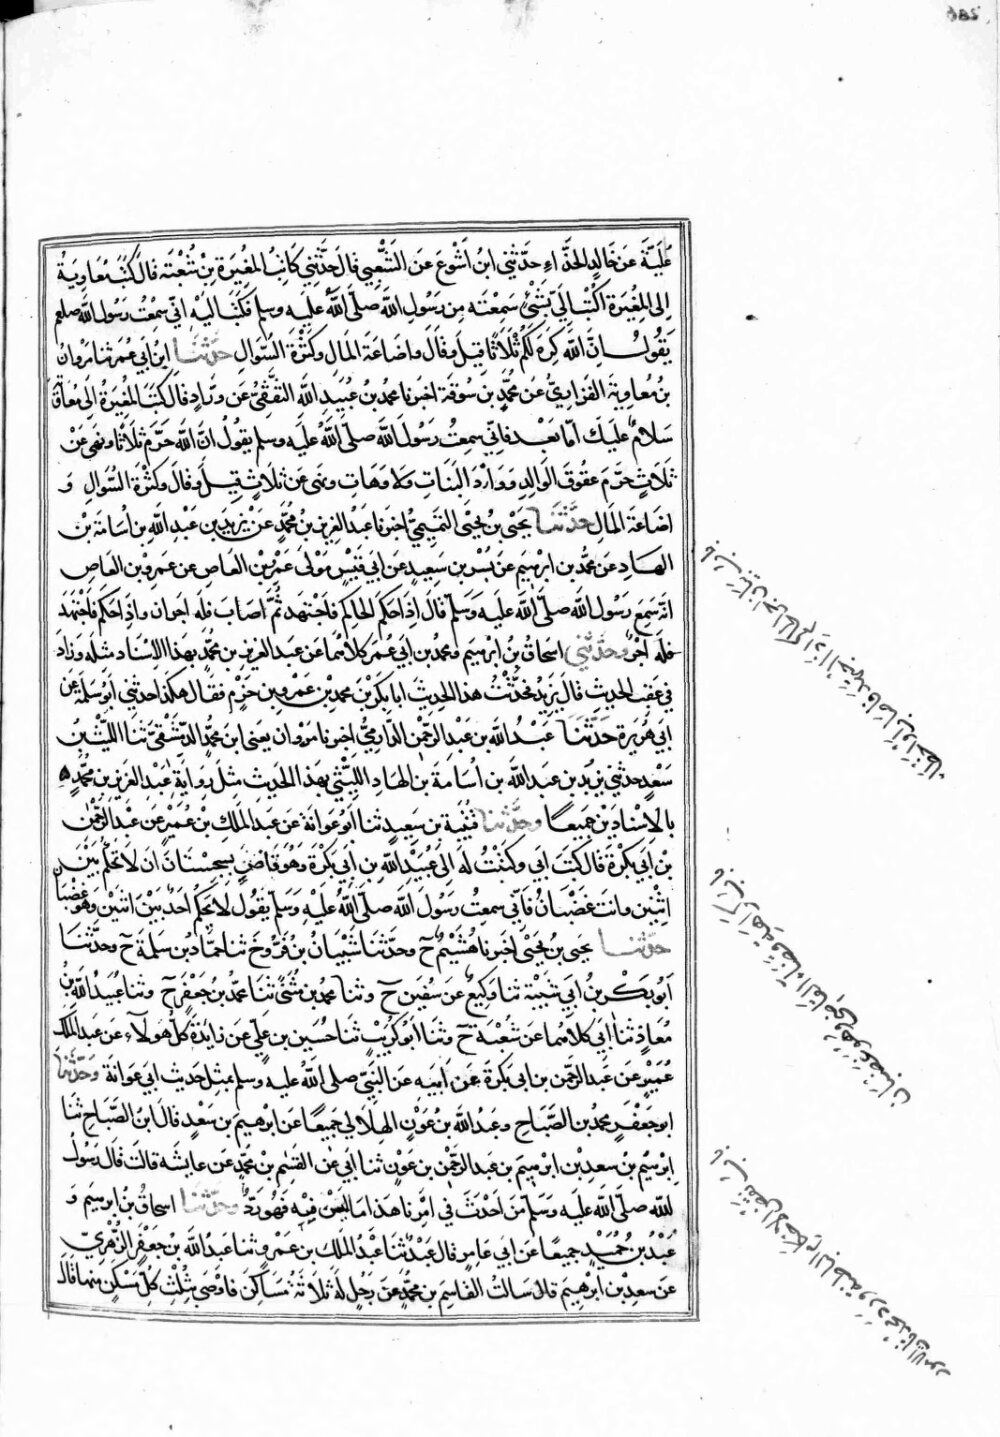 علية عن خالد الحذاء حدثني ابن اشوع عن الشعبي قال حدثني كاتب المغيرة بن شعبة قال كتب معاوية
الى المغيرة اكتب الي بشئ سمعته من رسول الله صلى الله عليه وسلم فكتب اليه اني سمعت رسول الله صلعم
يقول ان الله كره لكم ثلاثا قيل وقال واضاعة المال وكثرة السؤال حدثنا ابن ابي عمر ثنا مروان
بن معاوية الفزاري عن محمد بن سوقة اخبرنا محمد بن عبيد الله الثقفي عن وراد قال كتب المغيرة الى معاوية
سلام عليك اما بعد فاني سمعت رسول الله صلى الله عليه وسلم يقول ان الله حرم ثلاثا ونهى عن
ثلاث حرم عقوق الوالد ووأد البنات ولا وهات ونهى عن ثلاث قيل وقال وكثرة السؤال و
اضاعة المال حدثنا يحيى بن يحيى التميمي اخبرنا عبد العزيز بن محمد عن يزيد بن عبد الله بن اسامة بن
الهاد عن محمد بن ابرهيم عن بسر بن سعيد عن ابي قيس مولى عمرو بن العاص عن عمرو بن العاص
انه سمع رسول الله صلى الله عليه وسلم قال اذا حكم الحاكم فاجتهد ثم اصاب فله اجران واذا حكم فاجتهد
فله اجر وحدثني اسحاق بن ابرهيم ومحمد بن ابي عمر كلاهما عن عبد العزيز بن محمد بهذا الاسناد مثله وزاد
في عقب الحديث قال يزيد فحدثت هذا الحديث ابا بكر بن محمد بن عمرو بن حزم فقال هكذا حدثني ابو سلمة عن
ابي هريرة حدثنا عبد الله بن عبد الرحمن الدارمي اخبرنا مروان يعني ابن محمد الدمشقي ثنا الليث بن
سعد حدثني يزيد بن عبد الله بن اسامة بن الهاد الليثي بهذا الحديث مثل رواية عبد العزيز بن محمد
بالاسنادين جميعا وحدثنا قتيبة بن سعيد ثنا ابو عوانة عن عبد الملك بن عمير عن عبد الرحمن
بن ابي بكرة قال كتب ابي وكتبت له الى عبيد الله بن ابي بكرة وهو قاض بسجستان ان لا تحكم بين
اثنين وانت غضبان فاني سمعت رسول الله صلى الله عليه وسلم يقول لا يحكم احد بين اثنين وهو غضبان
حدثنا يحيى بن يحيى اخبرنا هشيم ح وحدثنا شيبان بن فروخ ثنا حماد بن سلمة ح وحدثنا
ابو بكر بن ابي شيبة ثنا وكيع عن سفين ح وثنا محمد بن مثنى ثنا محمد بن جعفر ح وثنا عبيد الله بن
معاذ ثنا ابي كلاهما عن شعبة ح وثنا ابو كريب ثنا حسين بن علي عن زائدة كل هولاء عن عبد الملك
عمير عن عبد الرحمن بن ابي بكرة عن ابيه عن النبي صلى الله عليه وسلم بمثل حديث ابي عوانة وحدثنا
ابو جعفر محمد بن الصباح وعبد الله بن عون الهلالي جميعا عن ابرهيم بن سعد قال ابن الصباح ثنا
ابرهيم بن سعد بن ابرهيم بن عبد الرحمن بن عون ثنا ابي عن القسم بن محمد عن عايشة قالت قال رسول
لله صلى الله عليه وسلم من احدث في امرنا هذا ما ليس فيه فهو رد وحدثنا اسحاق بن ابرهيم و
عبد بن حميد جميعا عن ابي عامر قال عبد ثنا عبد الملك بن عمرو ثنا عبد الله بن جعفر الزهري
عن سعد بن ابرهيم قال سالت القاسم بن محمد عن رجل له ثلاثة مساكن فاوصى بثلث كل مسكن منها قال
باب بيان اجر الحاكم اذا اجتهد فاصاب او اخطا
باب كراهة قضاء القاضي وهو غضبان
باب نقض الاحكام الباطلة ورد محدثات الامور